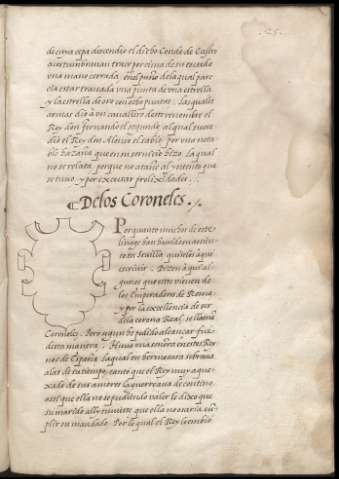 25.
de cuya cepa desciende el dicho Conde de Castro
acostumbravan traer por cima de su escudo
una mano cerrada, en el puño de la qual pare
cia estar travada una punta de una estrella
y la estrella de oro con ocho puntas. Las quales
armas dio a un cavallero deste renombre el
Rey don fernando el segundo, al qual suce
dio el Rey don Alonso el sabio por una nota
ble hazaña que en su servicio hizo. La qual
no se relata, porque no atañe al intento que
se tuvo, y por escusar prolixidades.
¶ Delos Coroneles.
Por quanto muchos de este
linage han havido su asiento
en Sevilla, quiseles aqui
escrivir. Dizen a qui al
gunos que estos vienen de
los Emperadores de Roma.
y por la excellencia de ser
de la corona Real, se llaman
Coroneles. Pero yo que he podido alcançar fue de
esta manera. Huvo una señora en estos Rey
nos de España, la qual en hermosura sobrava
a las de su tiempo, tanto que el Rey muy aque
xado de sus amores la querreava de contino,
assi que ella no se pudiendo valer le dixo que
su marido alli tuviese que ella no osaria cum
plir su mandado. Por lo qual el Rey le embio